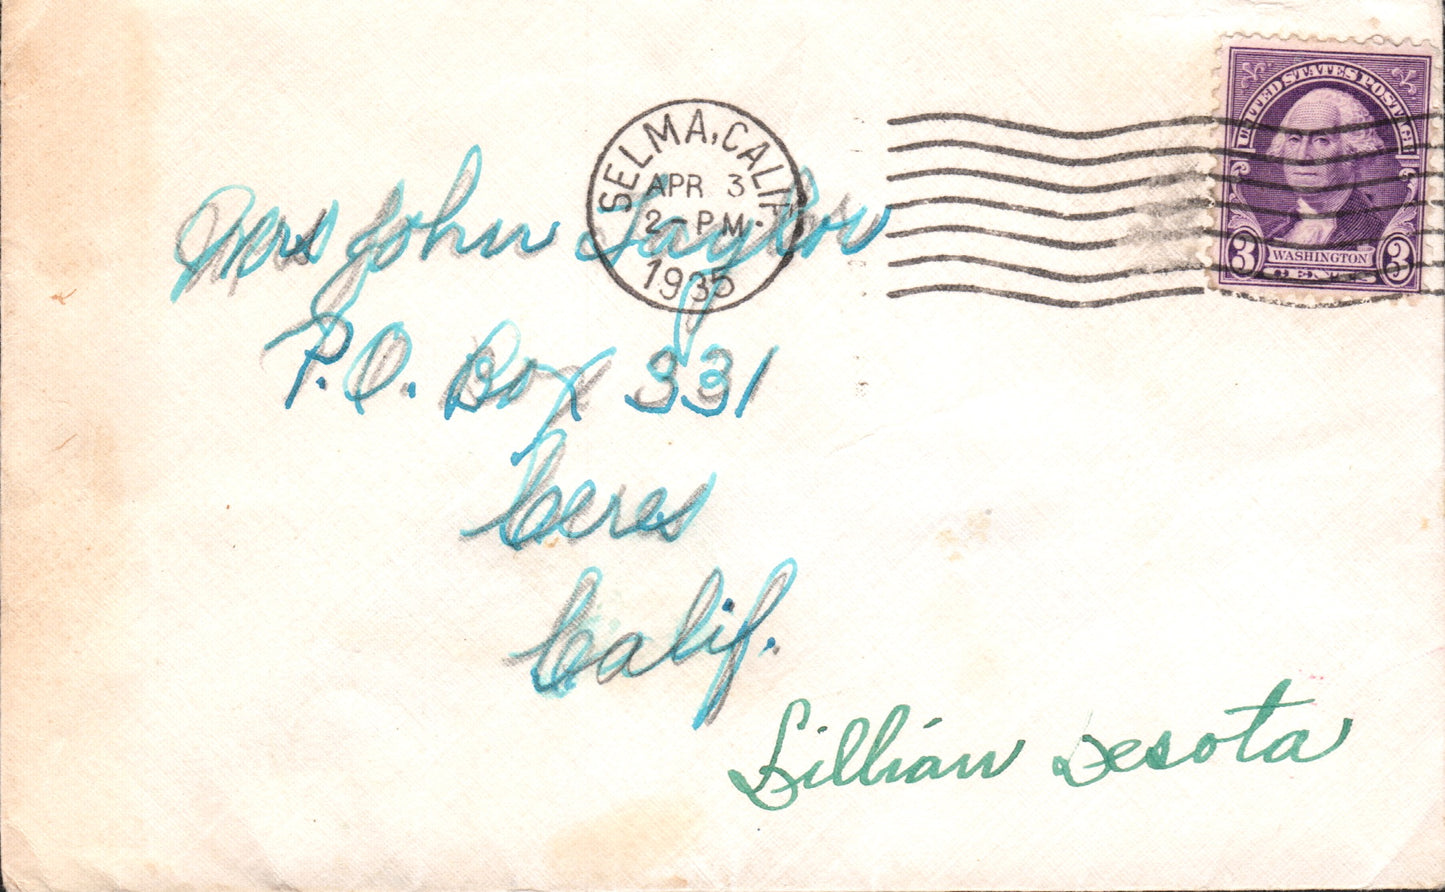 SELMA, CALIF.
APR 3
2-PM.
1935
UNITED STATES POSTAGE
3 WASHINGTON 3
CENTS
Mrs John Taylor
P.O. Box 331
Ceres
Calif.
Lillian Desota